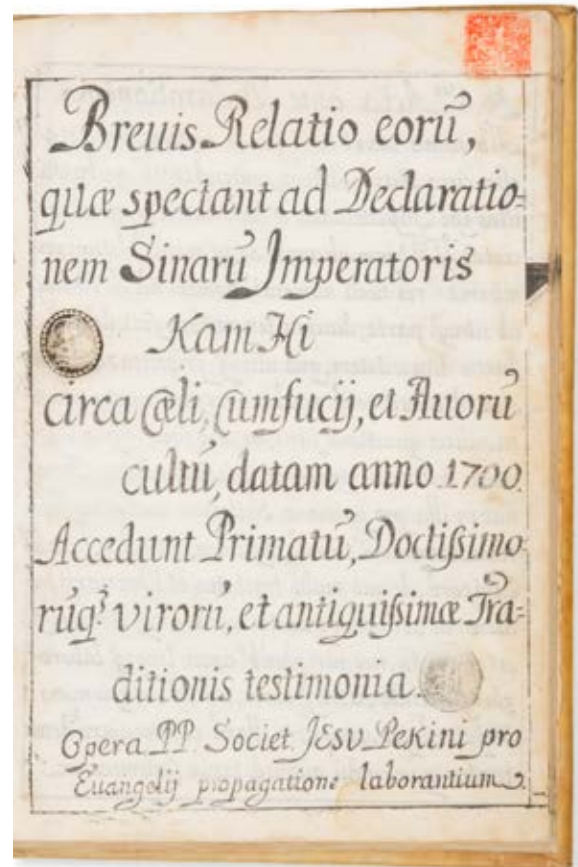 Breuis Relatio eorū,
quæ spectant ad Declaratio=
nem Sinarū Imperatoris
Kam Hi
circa Cœli, Cumfucij, et Auorū
cultū, datam anno 1700.
Accedunt Primatū, Doctißimo=
rūq3 virorū, et antiquißimæ Tra=
ditionis testimonia.
Opera PP. Societ. JESV Pekini pro
Euangelij propagatione laborantium.